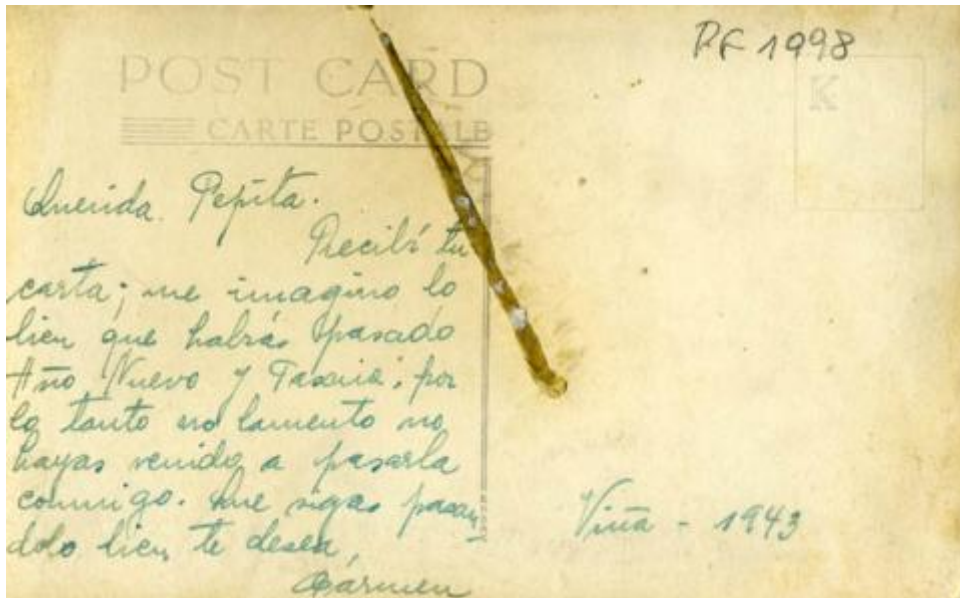 PF 1998
POST CARD
CARTE POSTALE
K
Querida Pepita.
Recibí tu
carta; me imagino lo
bien que habrás pasado
Año Nuevo y Pascua; por
lo tanto no lamento no
hayas venido a pasarla
conmigo. Que sigas pasán-
dolo bien, te desea,
Cármen
Viña - 1943